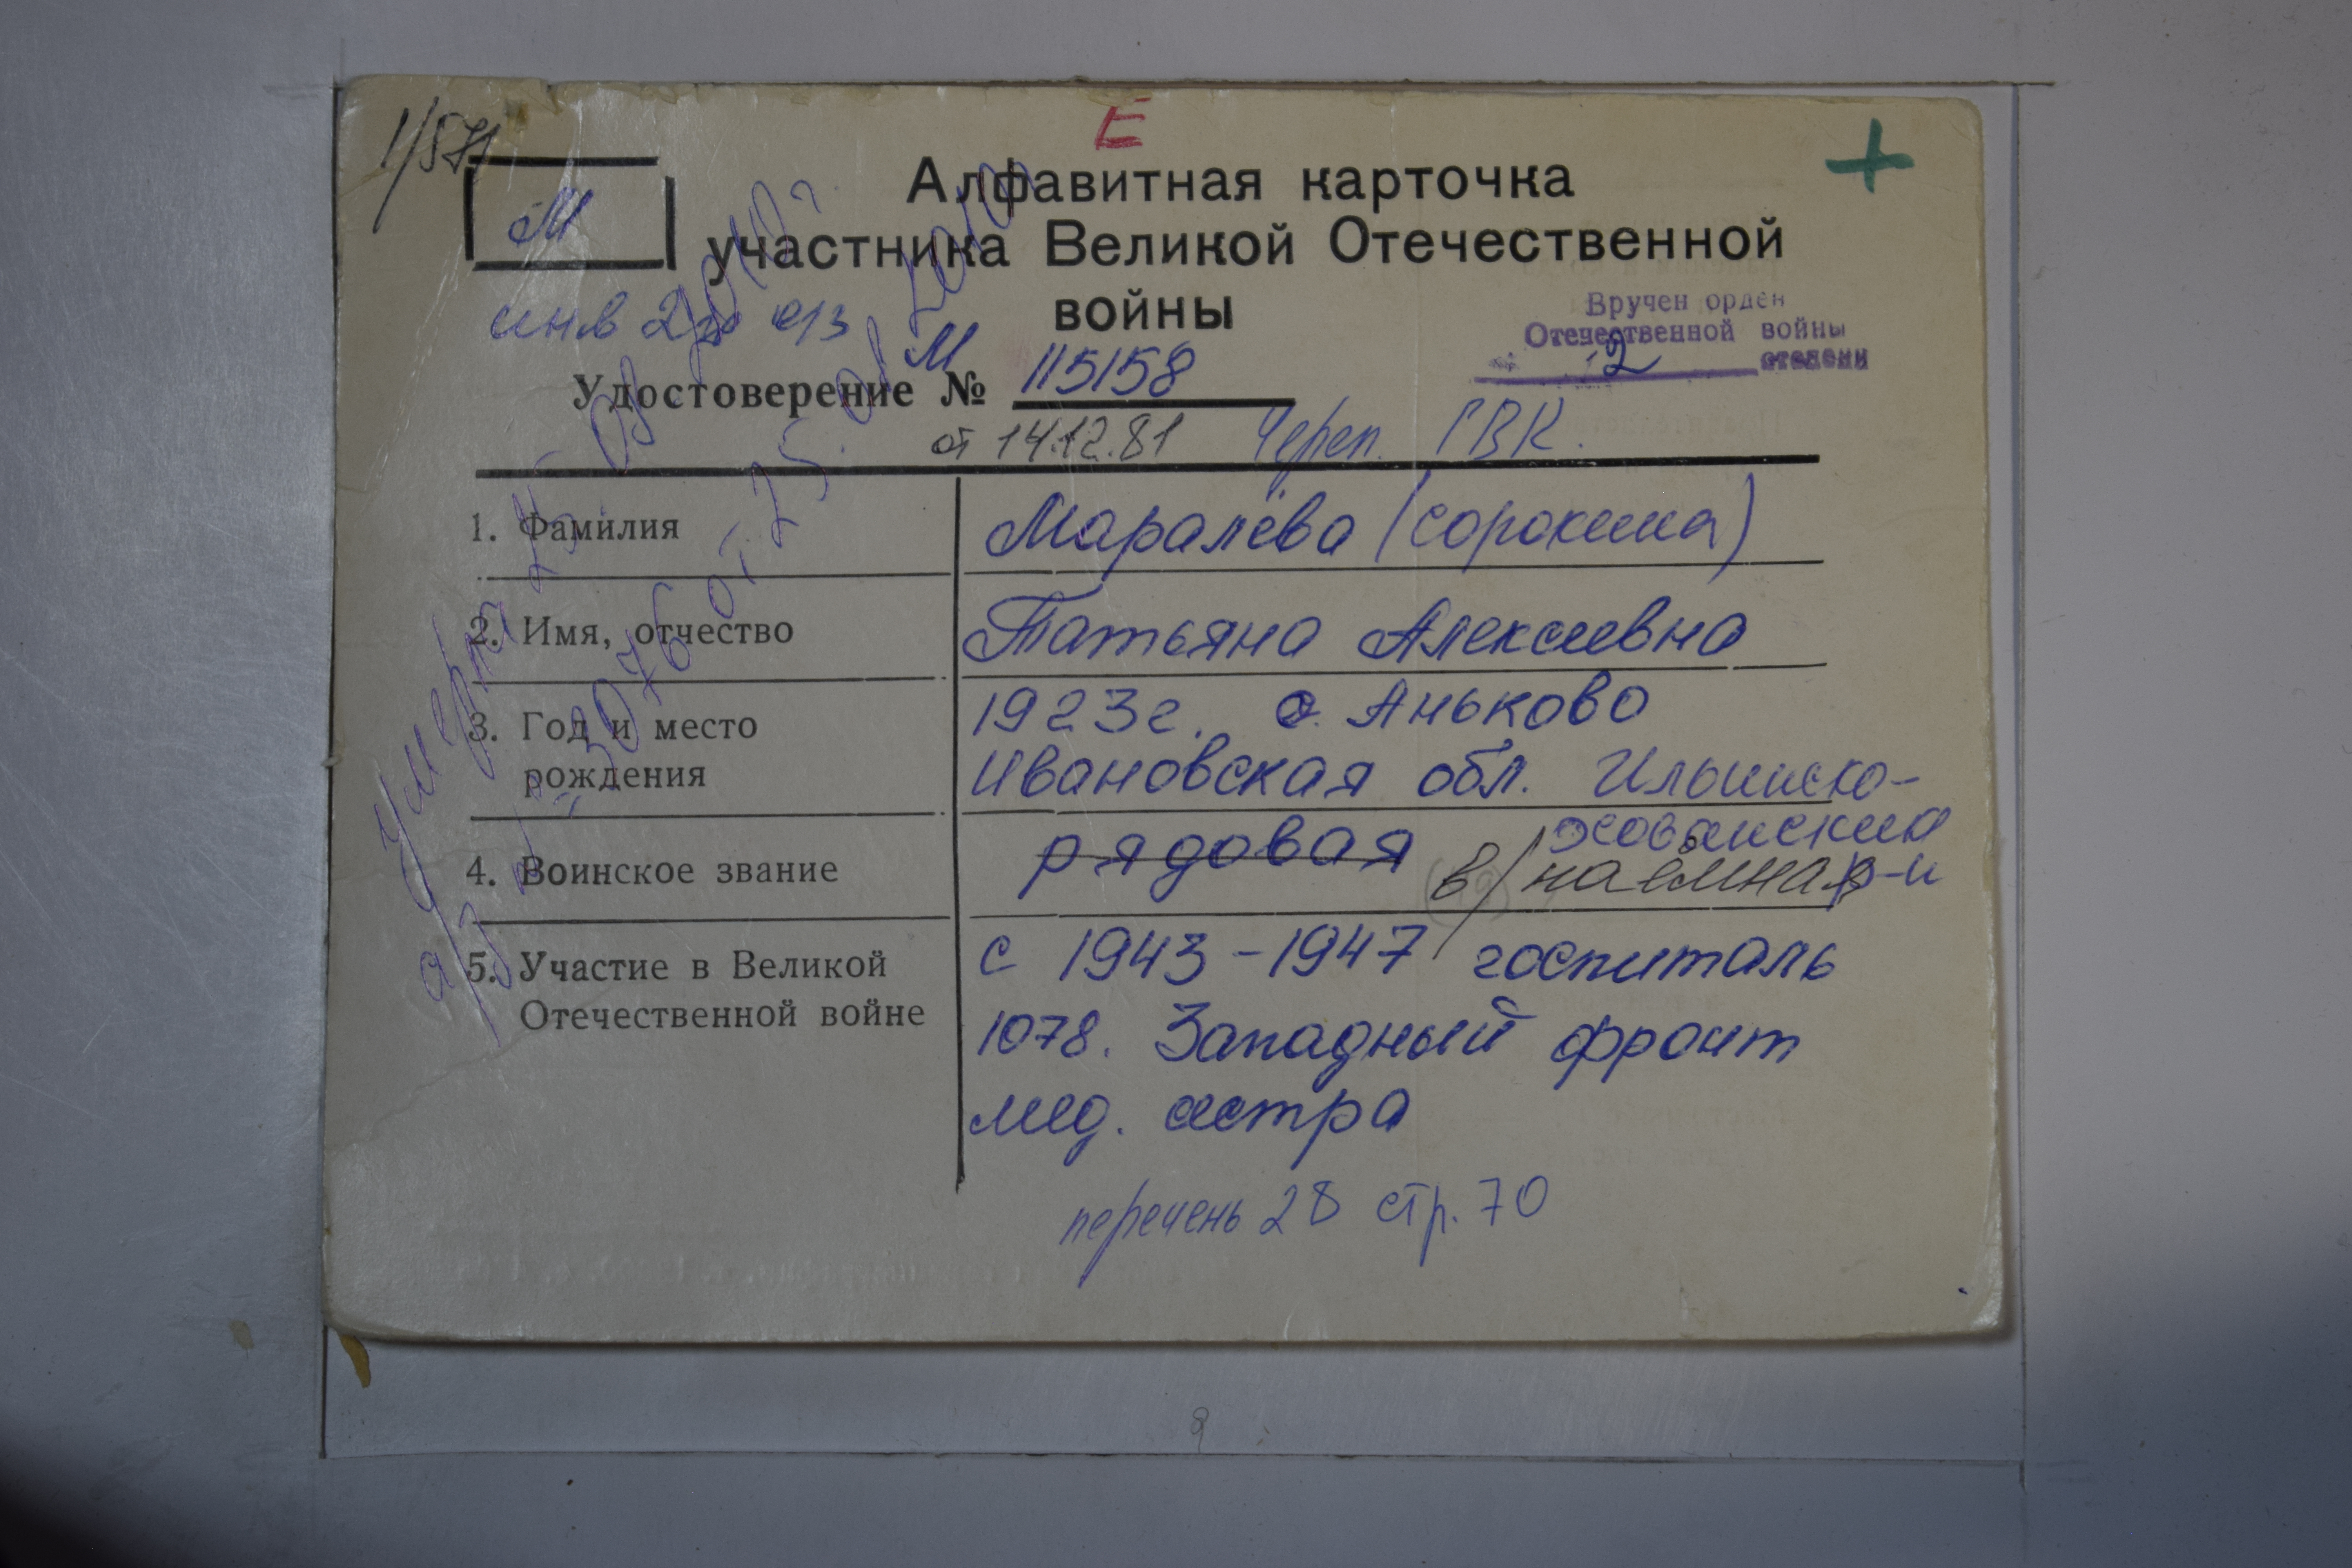 Е
1/571
Алфавитная карточка
М
участника Великой Отечественной
войны
инв 2гр о/з
Вручен орден
Отечественной войны
2 степени
Удостоверение № М 115158
от 14.12.81 Череп. ГВК.
1. Фамилия Маралёва (Сорокина)
2. Имя, отчество Татьяна Алексеевна
3. Год и место рождения 1923г. с. Аньково
Ивановская обл. Ильинско-
хованский р-н
4. Воинское звание рядовая в/наёмная
5. Участие в Великой Отечественной войне с 1943-1947 госпиталь
1078. Западный фронт
мед. сестра
перечень 28 стр. 70
Умерла 25 08 2010г
а/з № 3076 от 25. 08 2010